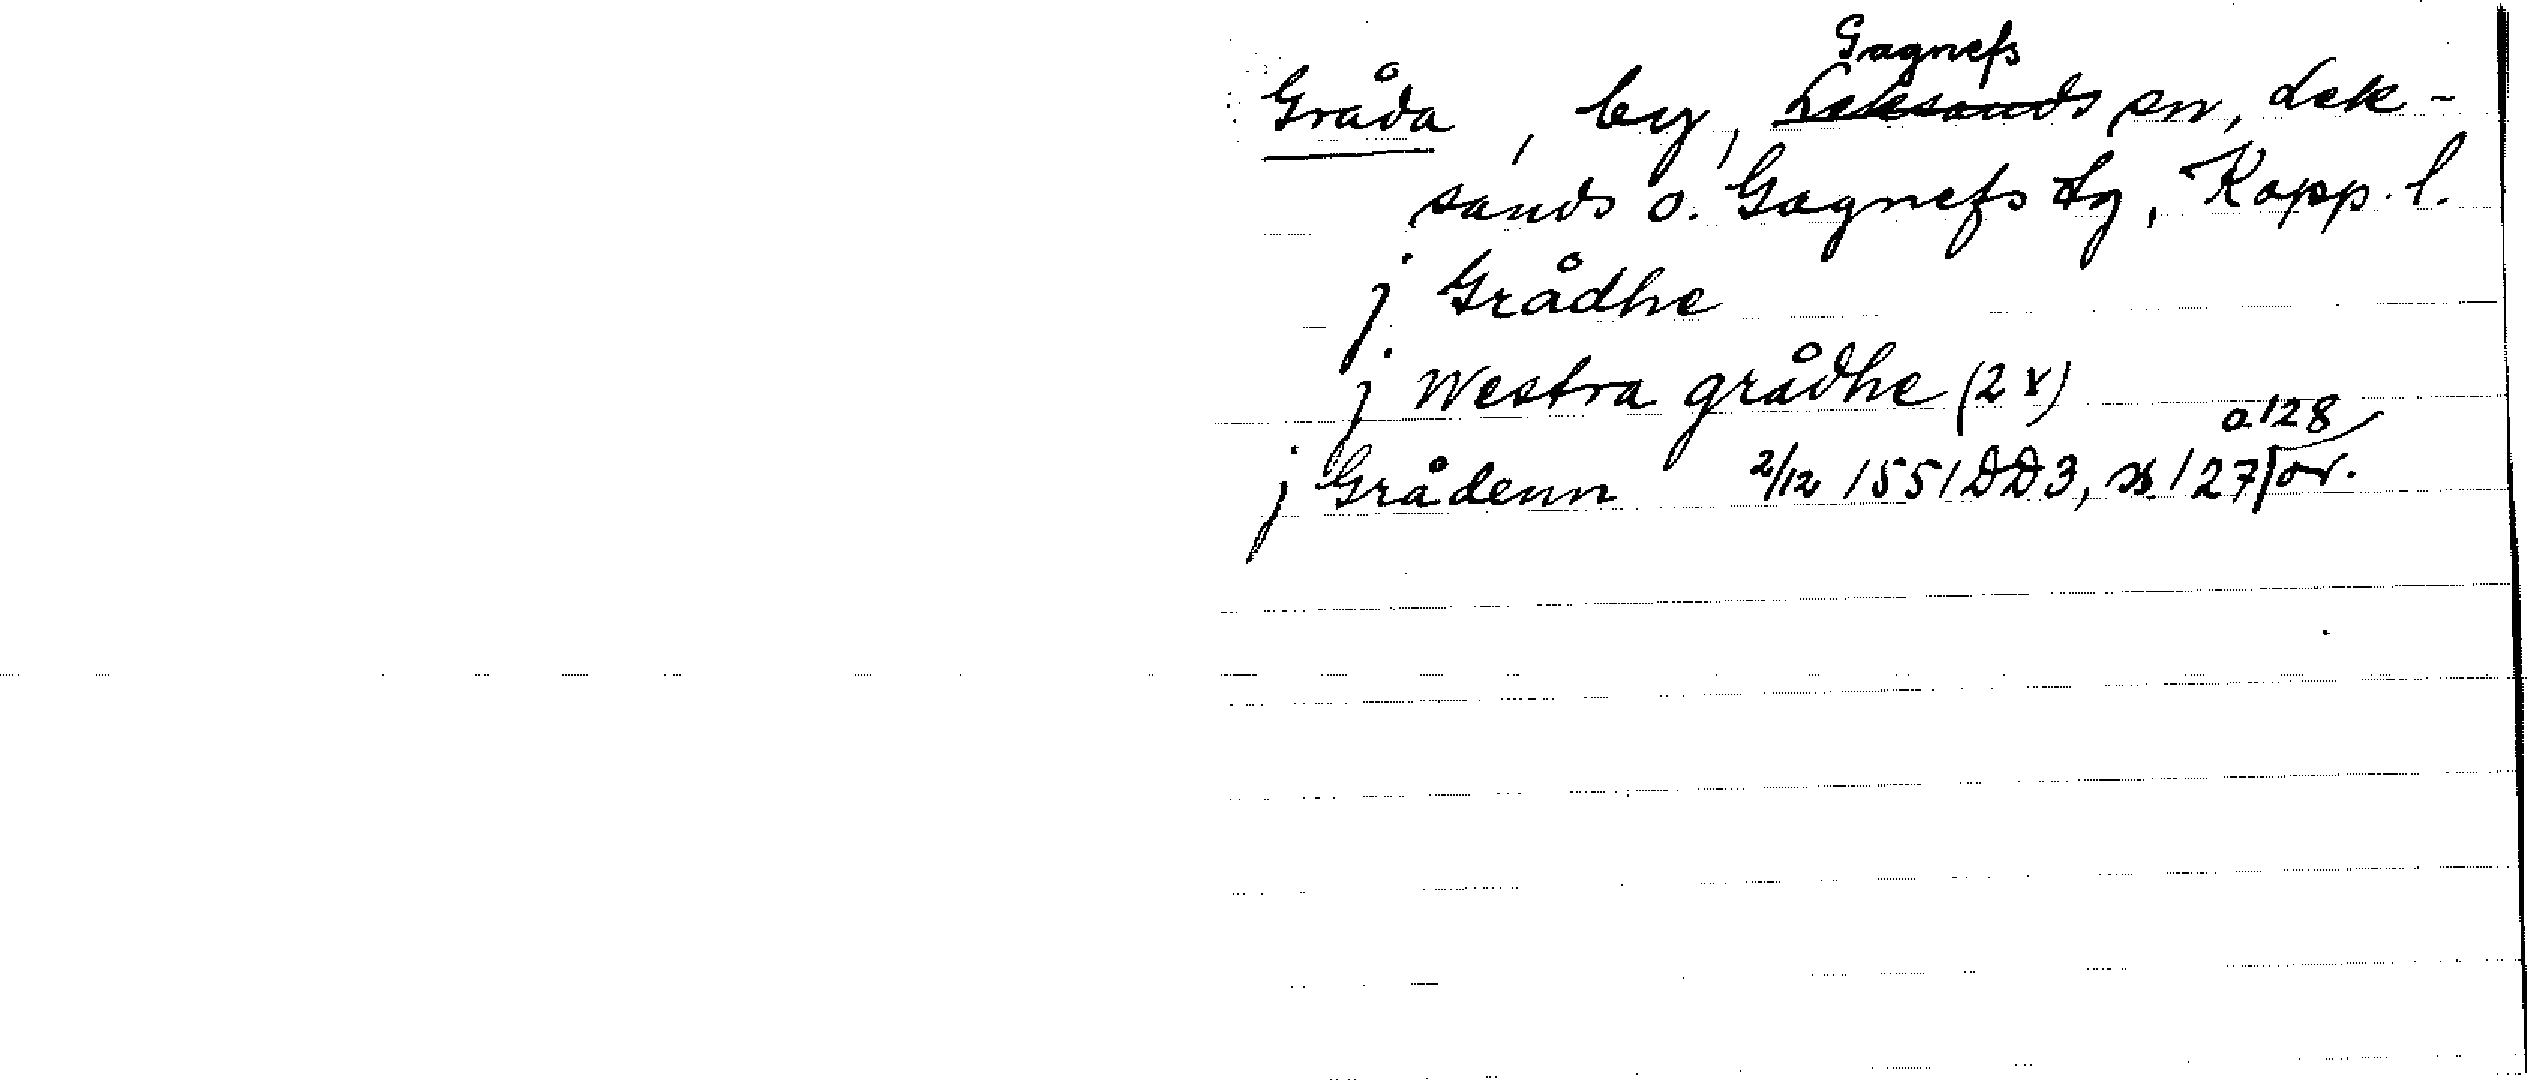 Gråda, by, Gagnefs sn, Lek-
sands o. Gagnefs tg, Kopp. l.
j Grådhe
j Westra grådhe (2 x)
o 128
j Grådenn 2/12 1551 DD3, s. 127 or.